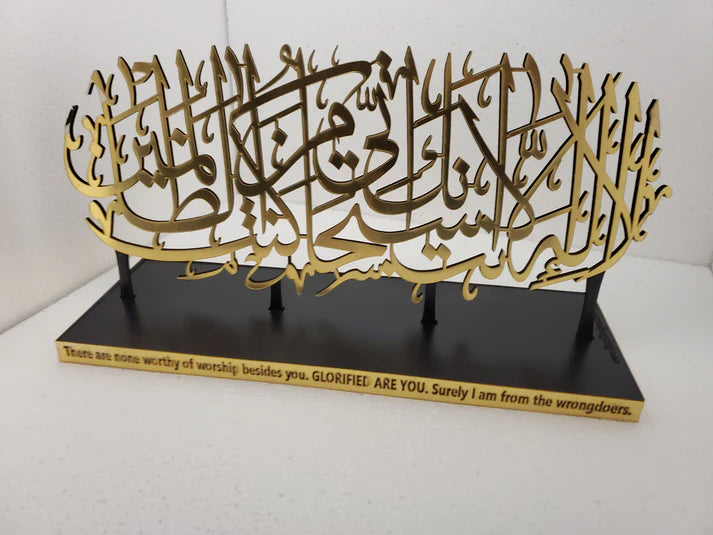 لا إله إلا أنت سبحانك إني كنت من الظالمين
There are none worthy of worship besides you. GLORIFIED ARE YOU. Surely I am from the wrongdoers.